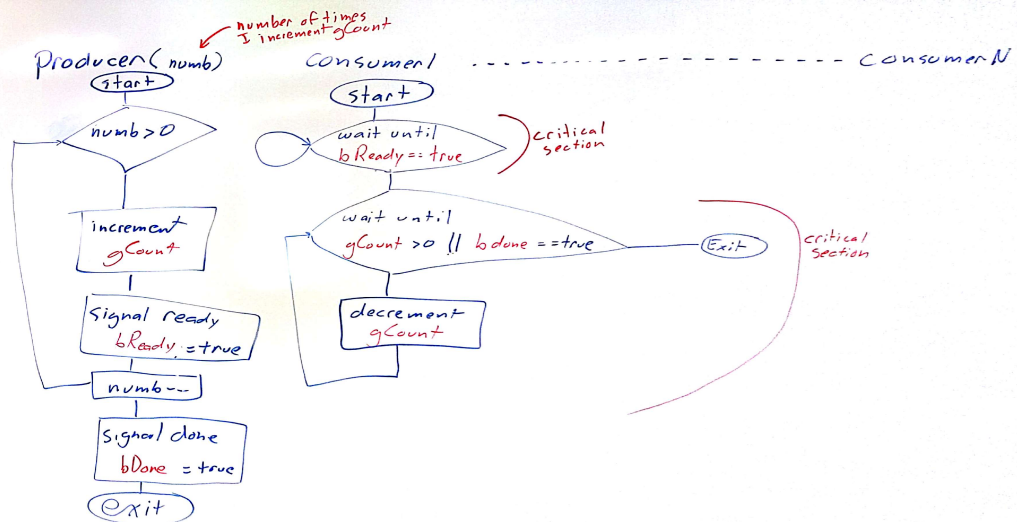 number of times
I increment gCount
Producer( numb)
start
numb>0
increment
gCount
signal ready
bReady = true
numb--
signal done
bDone = true
exit
Consumer1
start
wait until
bReady == true
critical
section
wait until
gCount >0 || bdone ==true
Exit
critical
section
decrement
gCount
ConsumerN